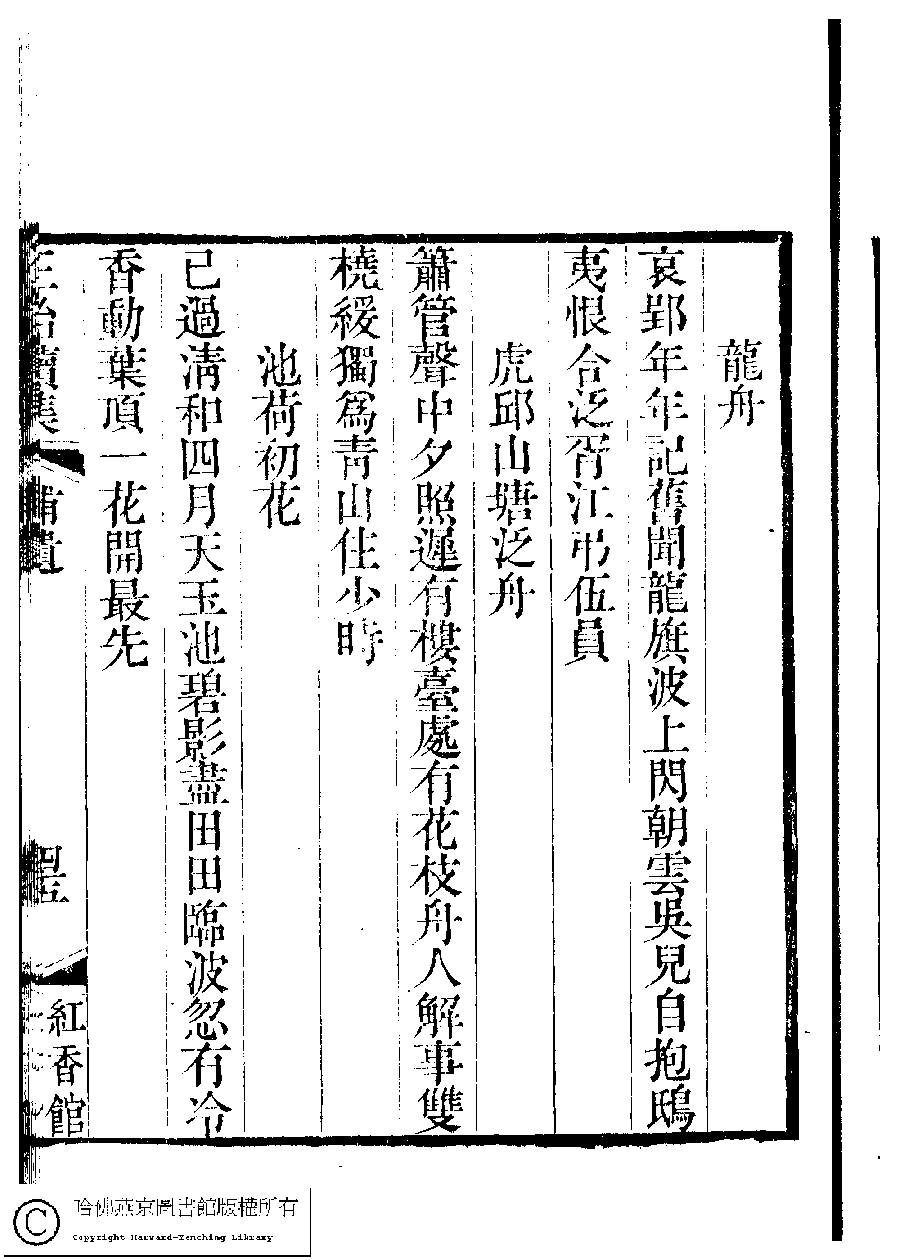 龍舟
哀郢年年記舊聞龍旗波上閃朝雲吳兒自抱鴟
夷恨合泛胥江弔伍員
虎邱山塘泛舟
簫管聲中夕照遲有樓臺處有花枝舟人解事雙
橈緩獨爲靑山住少時
池荷初花
已過淸和四月天玉池碧影盡田田臨波忽有冷
香動葉頂一花開最先
續集
補遺
紅香館
哈佛燕京圖書館版權所有
Copyright Harvard-Yenching Library